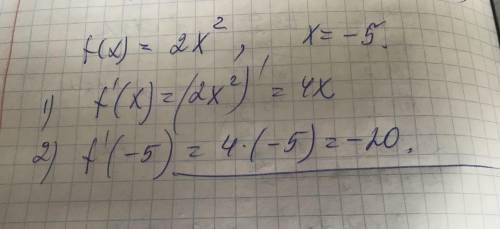 f(x) = 2x², x = -5.
1) f'(x) = (2x²)' = 4x
2) f'(-5) = 4·(-5) = -20.